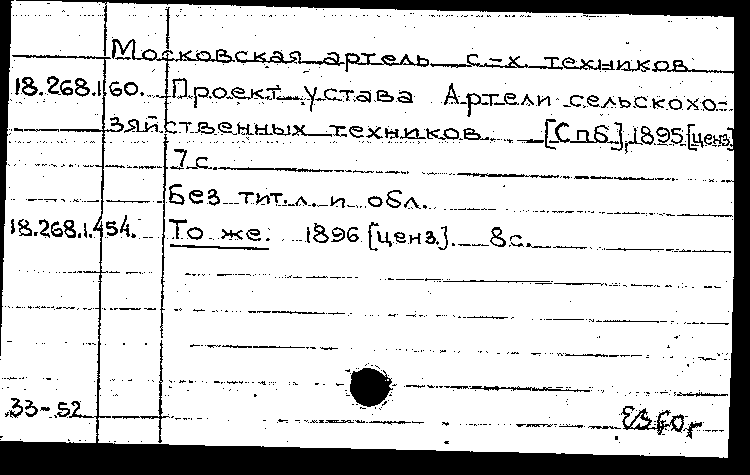 Московская артель с.-х. техников
18.268.1.60. Проект устава Артели сельскохо-
зяйственных техников. [Спб], 1895 [ценз]
7 с.
Без тит. л. и обл.
18.268.1.454. То же. 1896 [ценз]. 8 с.
33-52